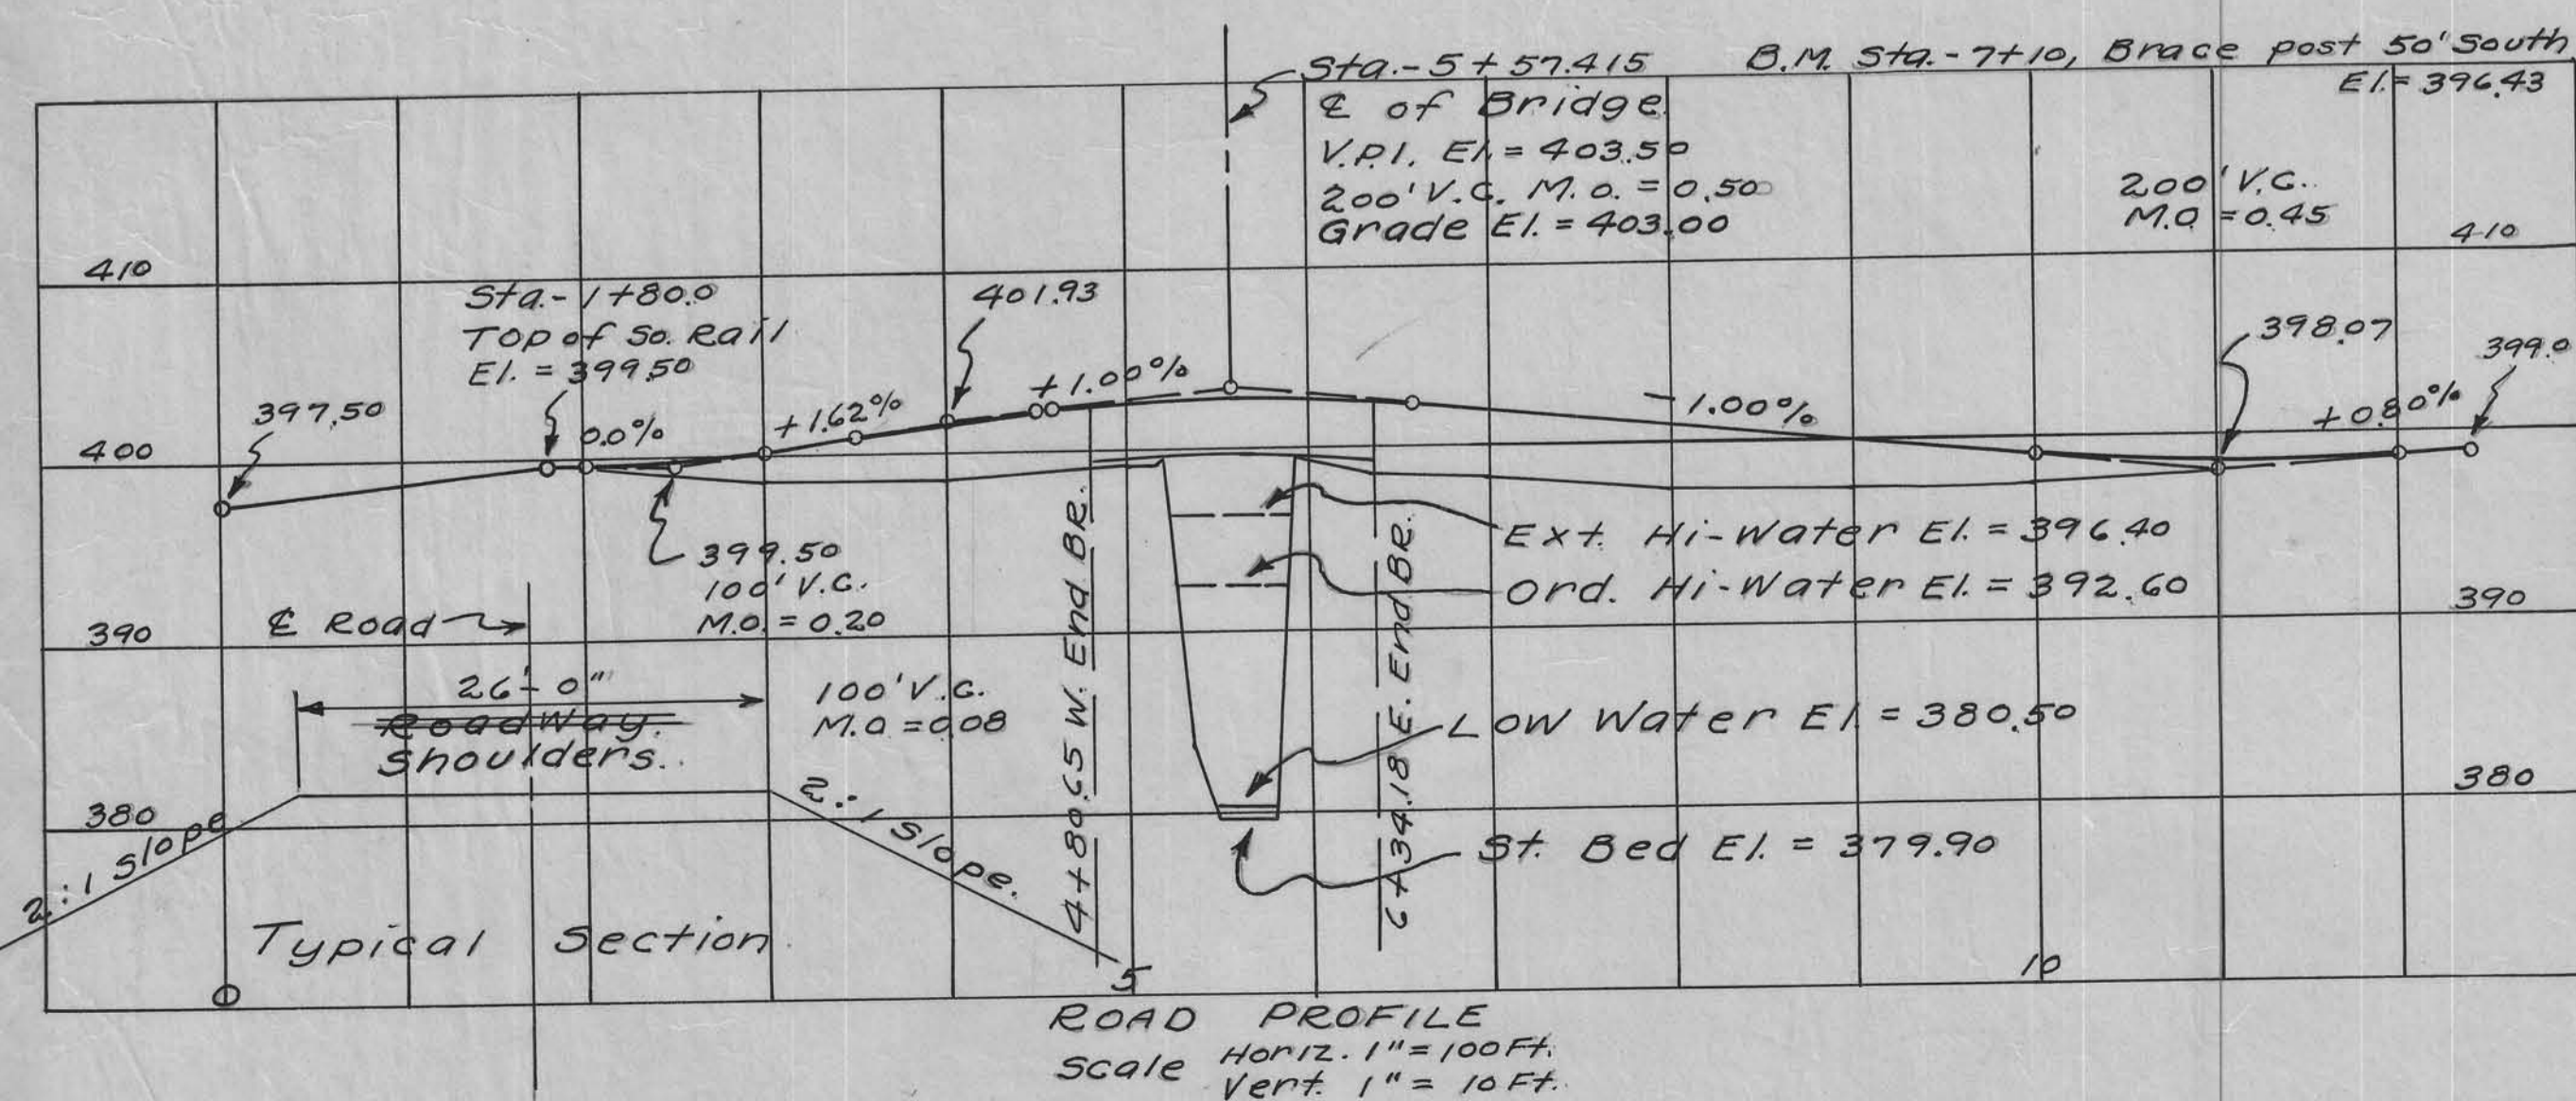 Sta.-5+57.415
℄ of Bridge
V.P.I. El. = 403.50
200' V.C. M.O. = 0.50
Grade El. = 403.00
B.M. Sta.-7+10, Brace post 50' South
El. = 396.43
200' V.C.
M.O = 0.45
410
410
Sta.-1+80.0
Top of So. Rail
El. = 399.50
401.93
398.07
399.0
397.50
0.0%
+1.62%
+1.00%
-1.00%
+0.80%
400
399.50
100' V.C.
M.O. = 0.20
Ext. Hi-Water El. = 396.40
Ord. Hi-Water El. = 392.60
390
390
℄ Road
26'-0"
RoadWay.
Shoulders.
100' V.C.
M.O = 0.08
4+80.65 W. End BR.
6+34.18 E. End BR.
Low Water El. = 380.50
380
380
St. Bed El. = 379.90
2:1 Slope
2:1 Slope.
Typical Section
0
5
10
ROAD PROFILE
Scale Horiz. 1" = 100 Ft.
Vert. 1" = 10 Ft.